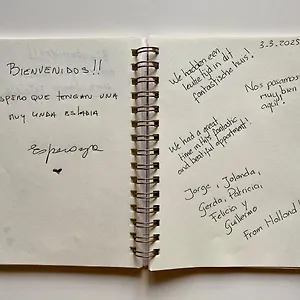 BIENVENIDOS!!
ESPERO QUE TENGAN UNA
MUY LINDA ESTADIA
Esperanza
3.3.2025
We hadden een
leuke tijd in dit
fantastische huis!
Nos pasamos
muy bien
aqui!
We had a great
time in this fantastic
and beautiful appartment!
Jorge, Jolanda,
Gerda, Patricia,
Felicia y
Guillermo
From Holland!!